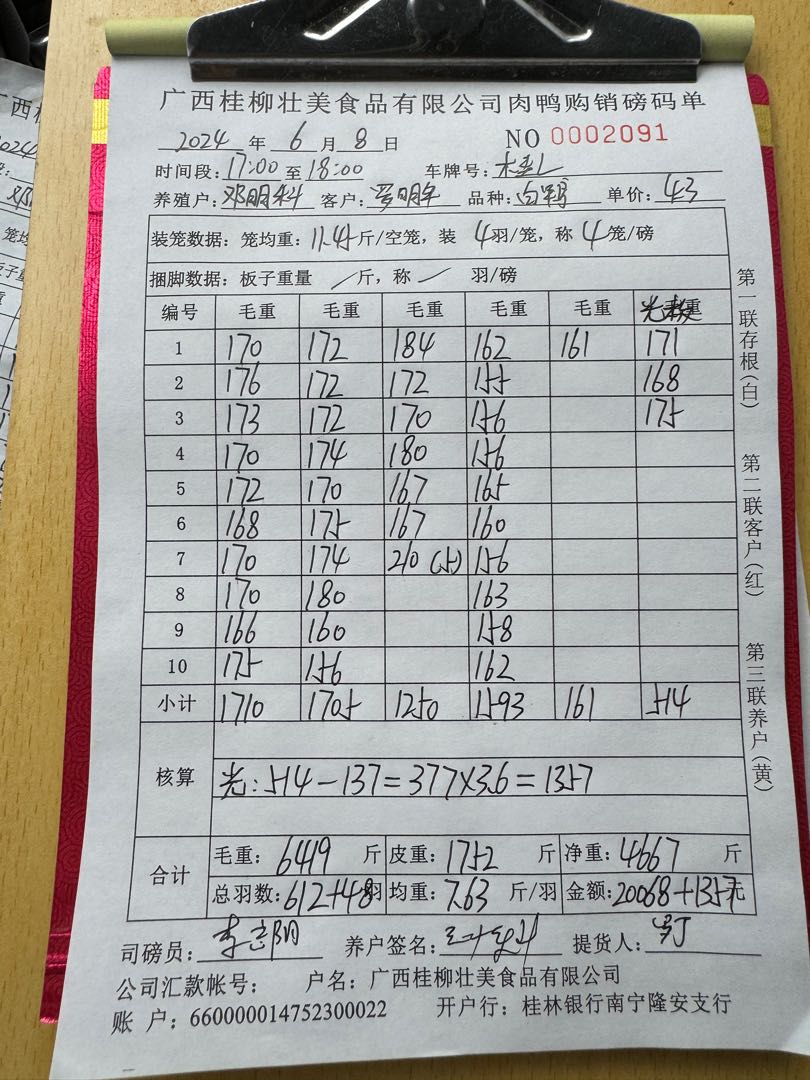 广西桂柳壮美食品有限公司肉鸭购销磅码单
2024 年 6 月 8 日 NO 0002091
时间段: 17:00 至 18:00 车牌号:
养殖户: 邓明科 客户: 罗明 品种: 白 单价: 4.3
装笼数据: 笼均重: 11.45 斤/空笼, 装 4 羽/笼, 称 4 笼/磅
捆脚数据: 板子重量 / 斤, 称 / 羽/磅
编号 毛重 毛重 毛重 毛重 毛重
1 170 172 184 162 161 171
2 176 172 172 155 168
3 173 172 170 156 175
4 170 174 180 156
5 172 170 167 165
6 168 175 167 160
7 170 174 210 (5) 156
8 170 180 163
9 166 160 158
10 175 156 162
小计 1710 1705 1250 1593 161 514
核算 光: 514-137=377×3.6=1357
合计 毛重: 6419 斤 皮重: 1752 斤 净重: 4667 斤
总羽数: 612+48 羽 均重: 7.63 斤/羽 金额: 20068+1357 元
司磅员: 李志阳 养户签名: 提货人:
公司汇款帐号: 户名: 广西桂柳壮美食品有限公司
账 户: 660000014752300022 开户行: 桂林银行南宁隆安支行
第一联存根(白)
第二联客户(红)
第三联养户(黄)